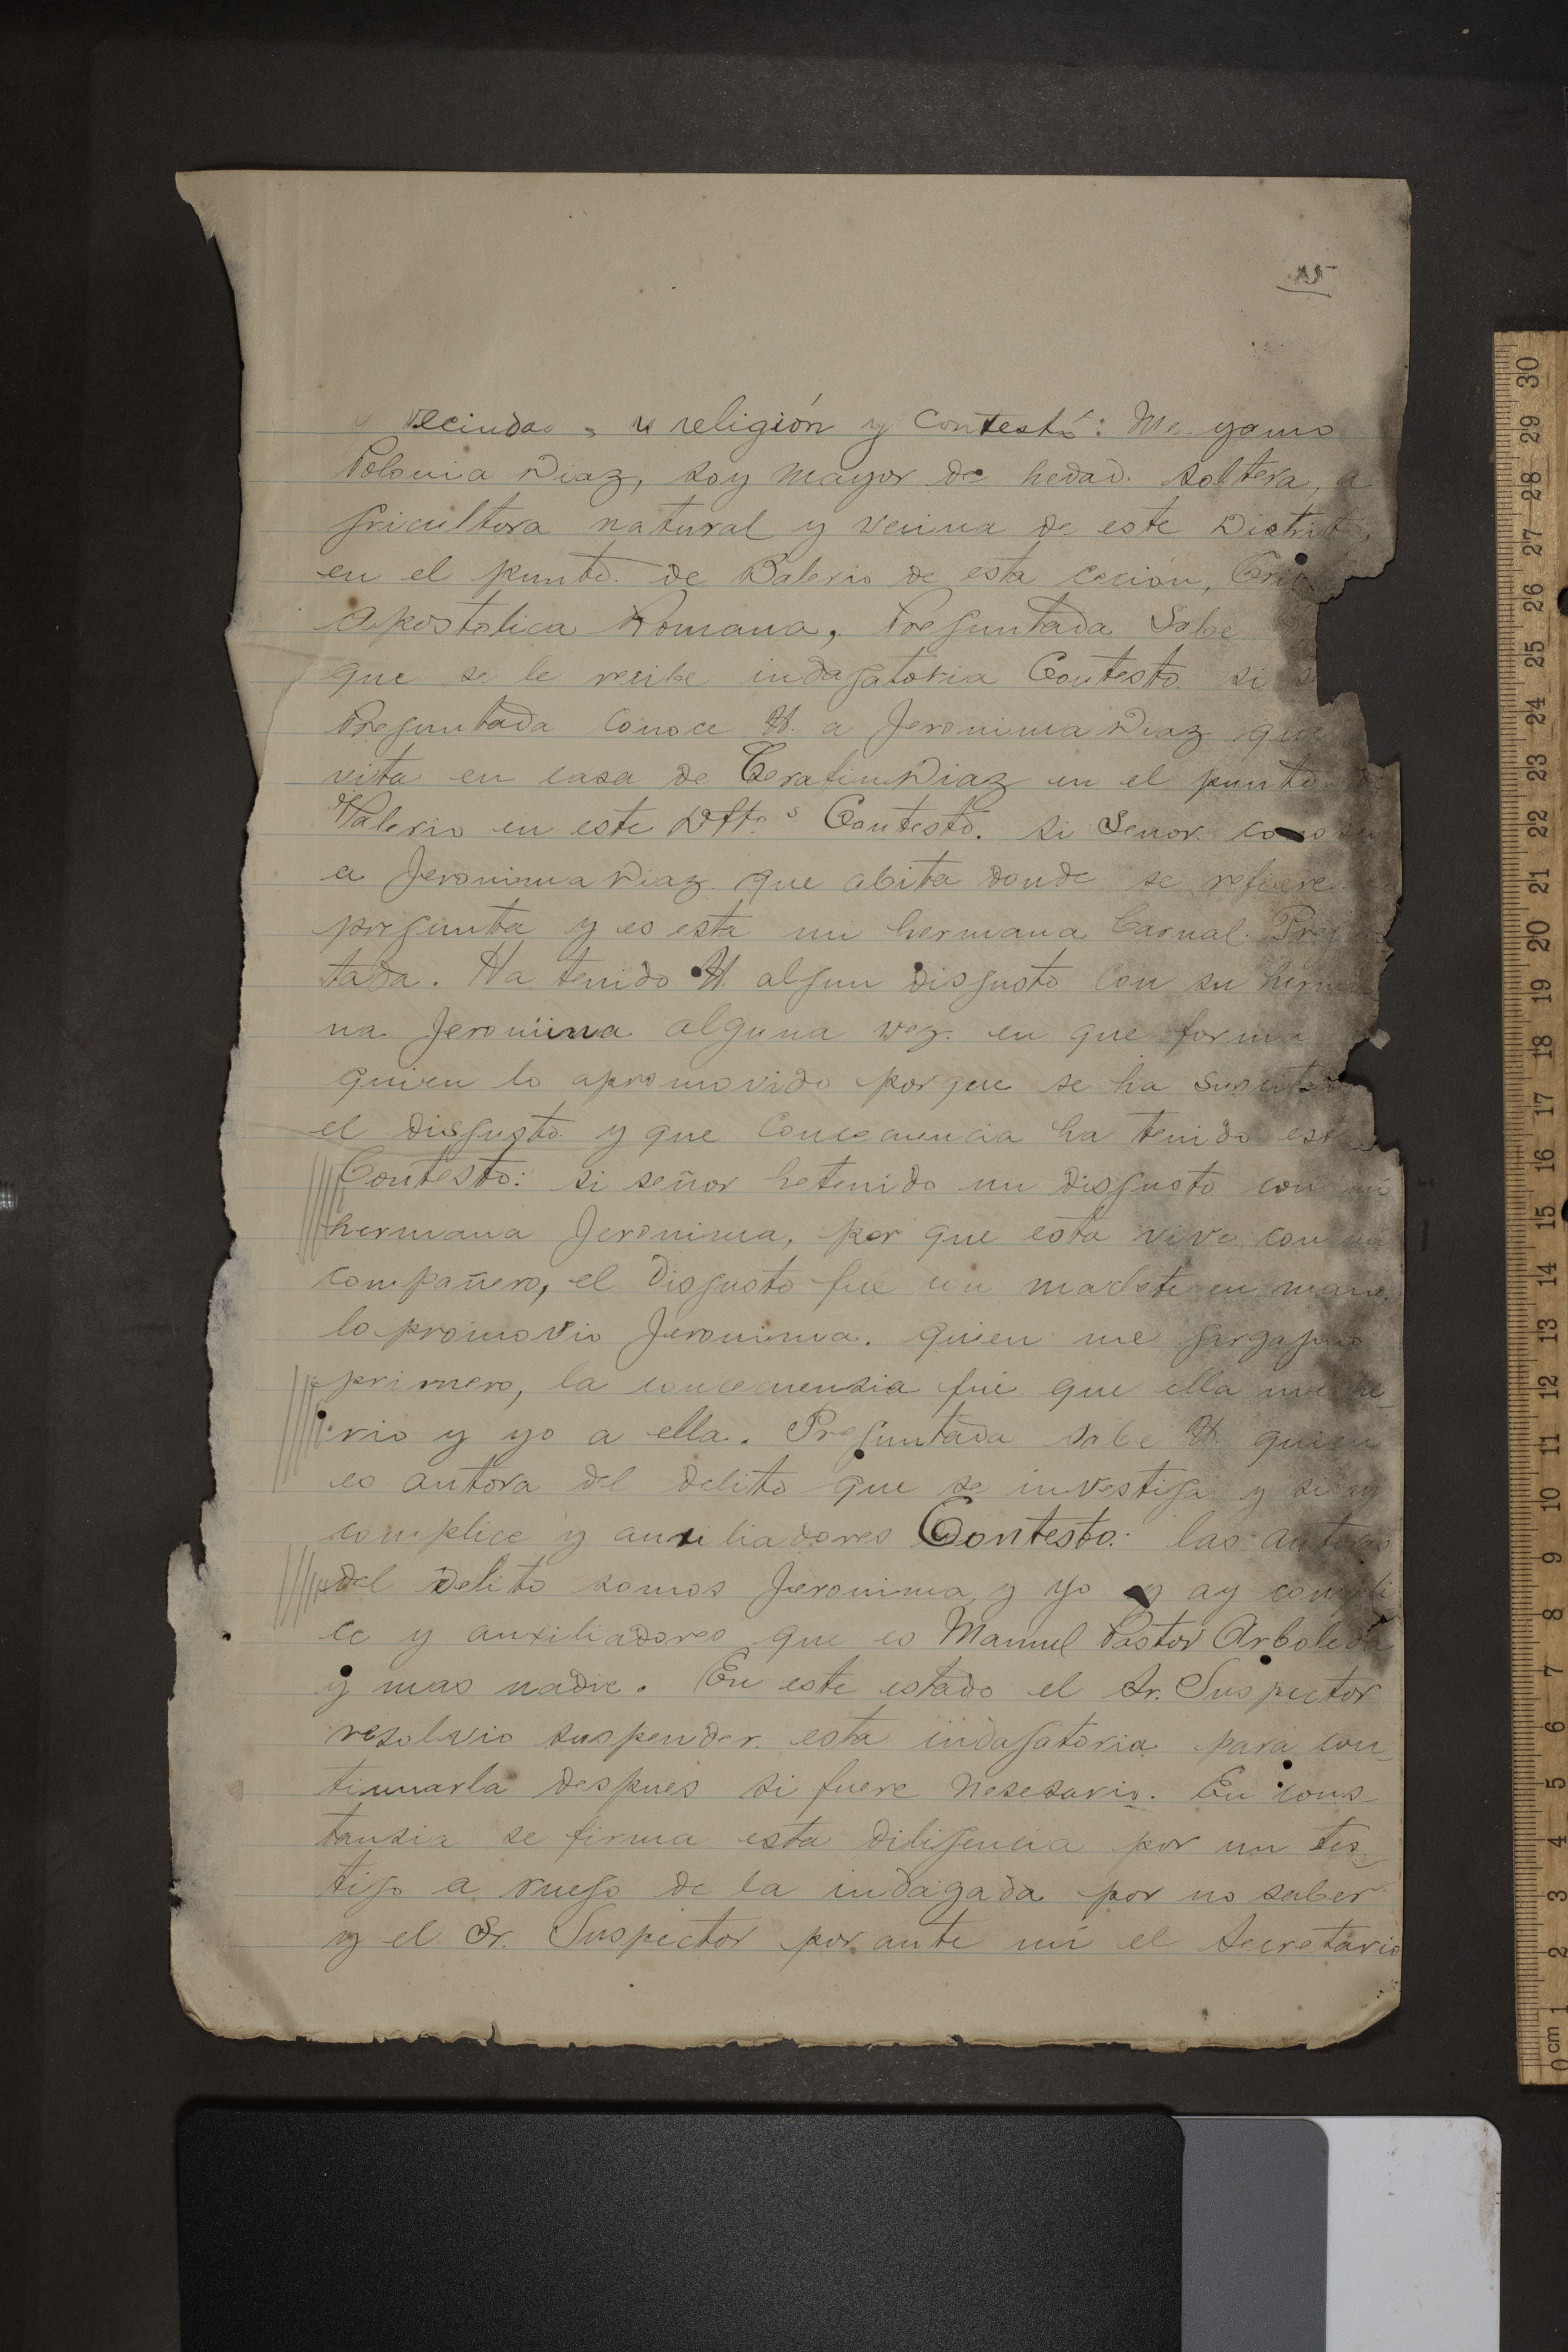 15
y vecindad y religión y contestó: Me yamo
Polonia Diaz, soy mayor de hedad. soltera, a
gricultora natural y vecina de este Distrito,
en el punto de Balerio de esta cecion,
Apostolica Romana, Preguntada Sabe
que se le recibe indagatoria Contesto. si
Preguntada conoce U. a Jeronima Diaz que
vita en casa de Cerafin Diaz en el punto de
Valerio en este Dtto. Contestó. si Señor. conosco
a Jeronima Diaz que abita donde se refiere
pregunta y es esta mi hermana Carnal. Pregun
tada. Ha tenido U. algun disgusto con su herma
na Jeronima alguna vez. en que forma
quien lo apromovido porque se ha suscitado
el disgusto y que concecuencia ha tenido este
Contesto: si señor hetenido un disgusto con mi
hermana Jeronima, por que esta vive con mi
compañero, el disgusto fué un machete en mano
lo promovio Jeronima. quien me
primero, la concecuensia fué que ella me he_
rio y yo a ella. Preguntada sabe U. quien
es autora del delito que se investiga y si ay
complice y auxiliadores Contesto: las autoras
del delito somos Jeronima y yo y ay compli
ce y auxiliadores que es Manuel Pastor Arboleda
y mas nadie. En este estado el Sr. Inspector
resolvio suspender esta indagatoria para con_
tinuarla despues si fuere nesesario. En cons_
tansia se firma esta diligencia por un tes_
tigo a ruego de la indagada por no saber
y el Sr. Inspector por ante mi el Secretario